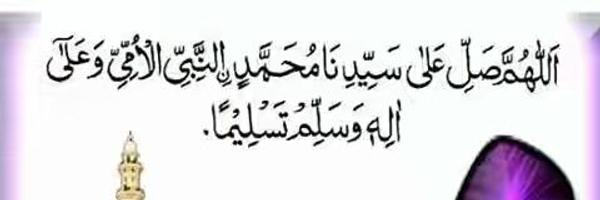 اَللّٰهُمَّ صَلِّ عَلٰی سَيِّدِنَا مُحَمَّدِ ۣالنَّبِيِّ الْاُمِّيِّ وَعَلٰٓی
اٰلِهٖ وَسَلِّمْ تَسْلِيْمًا.